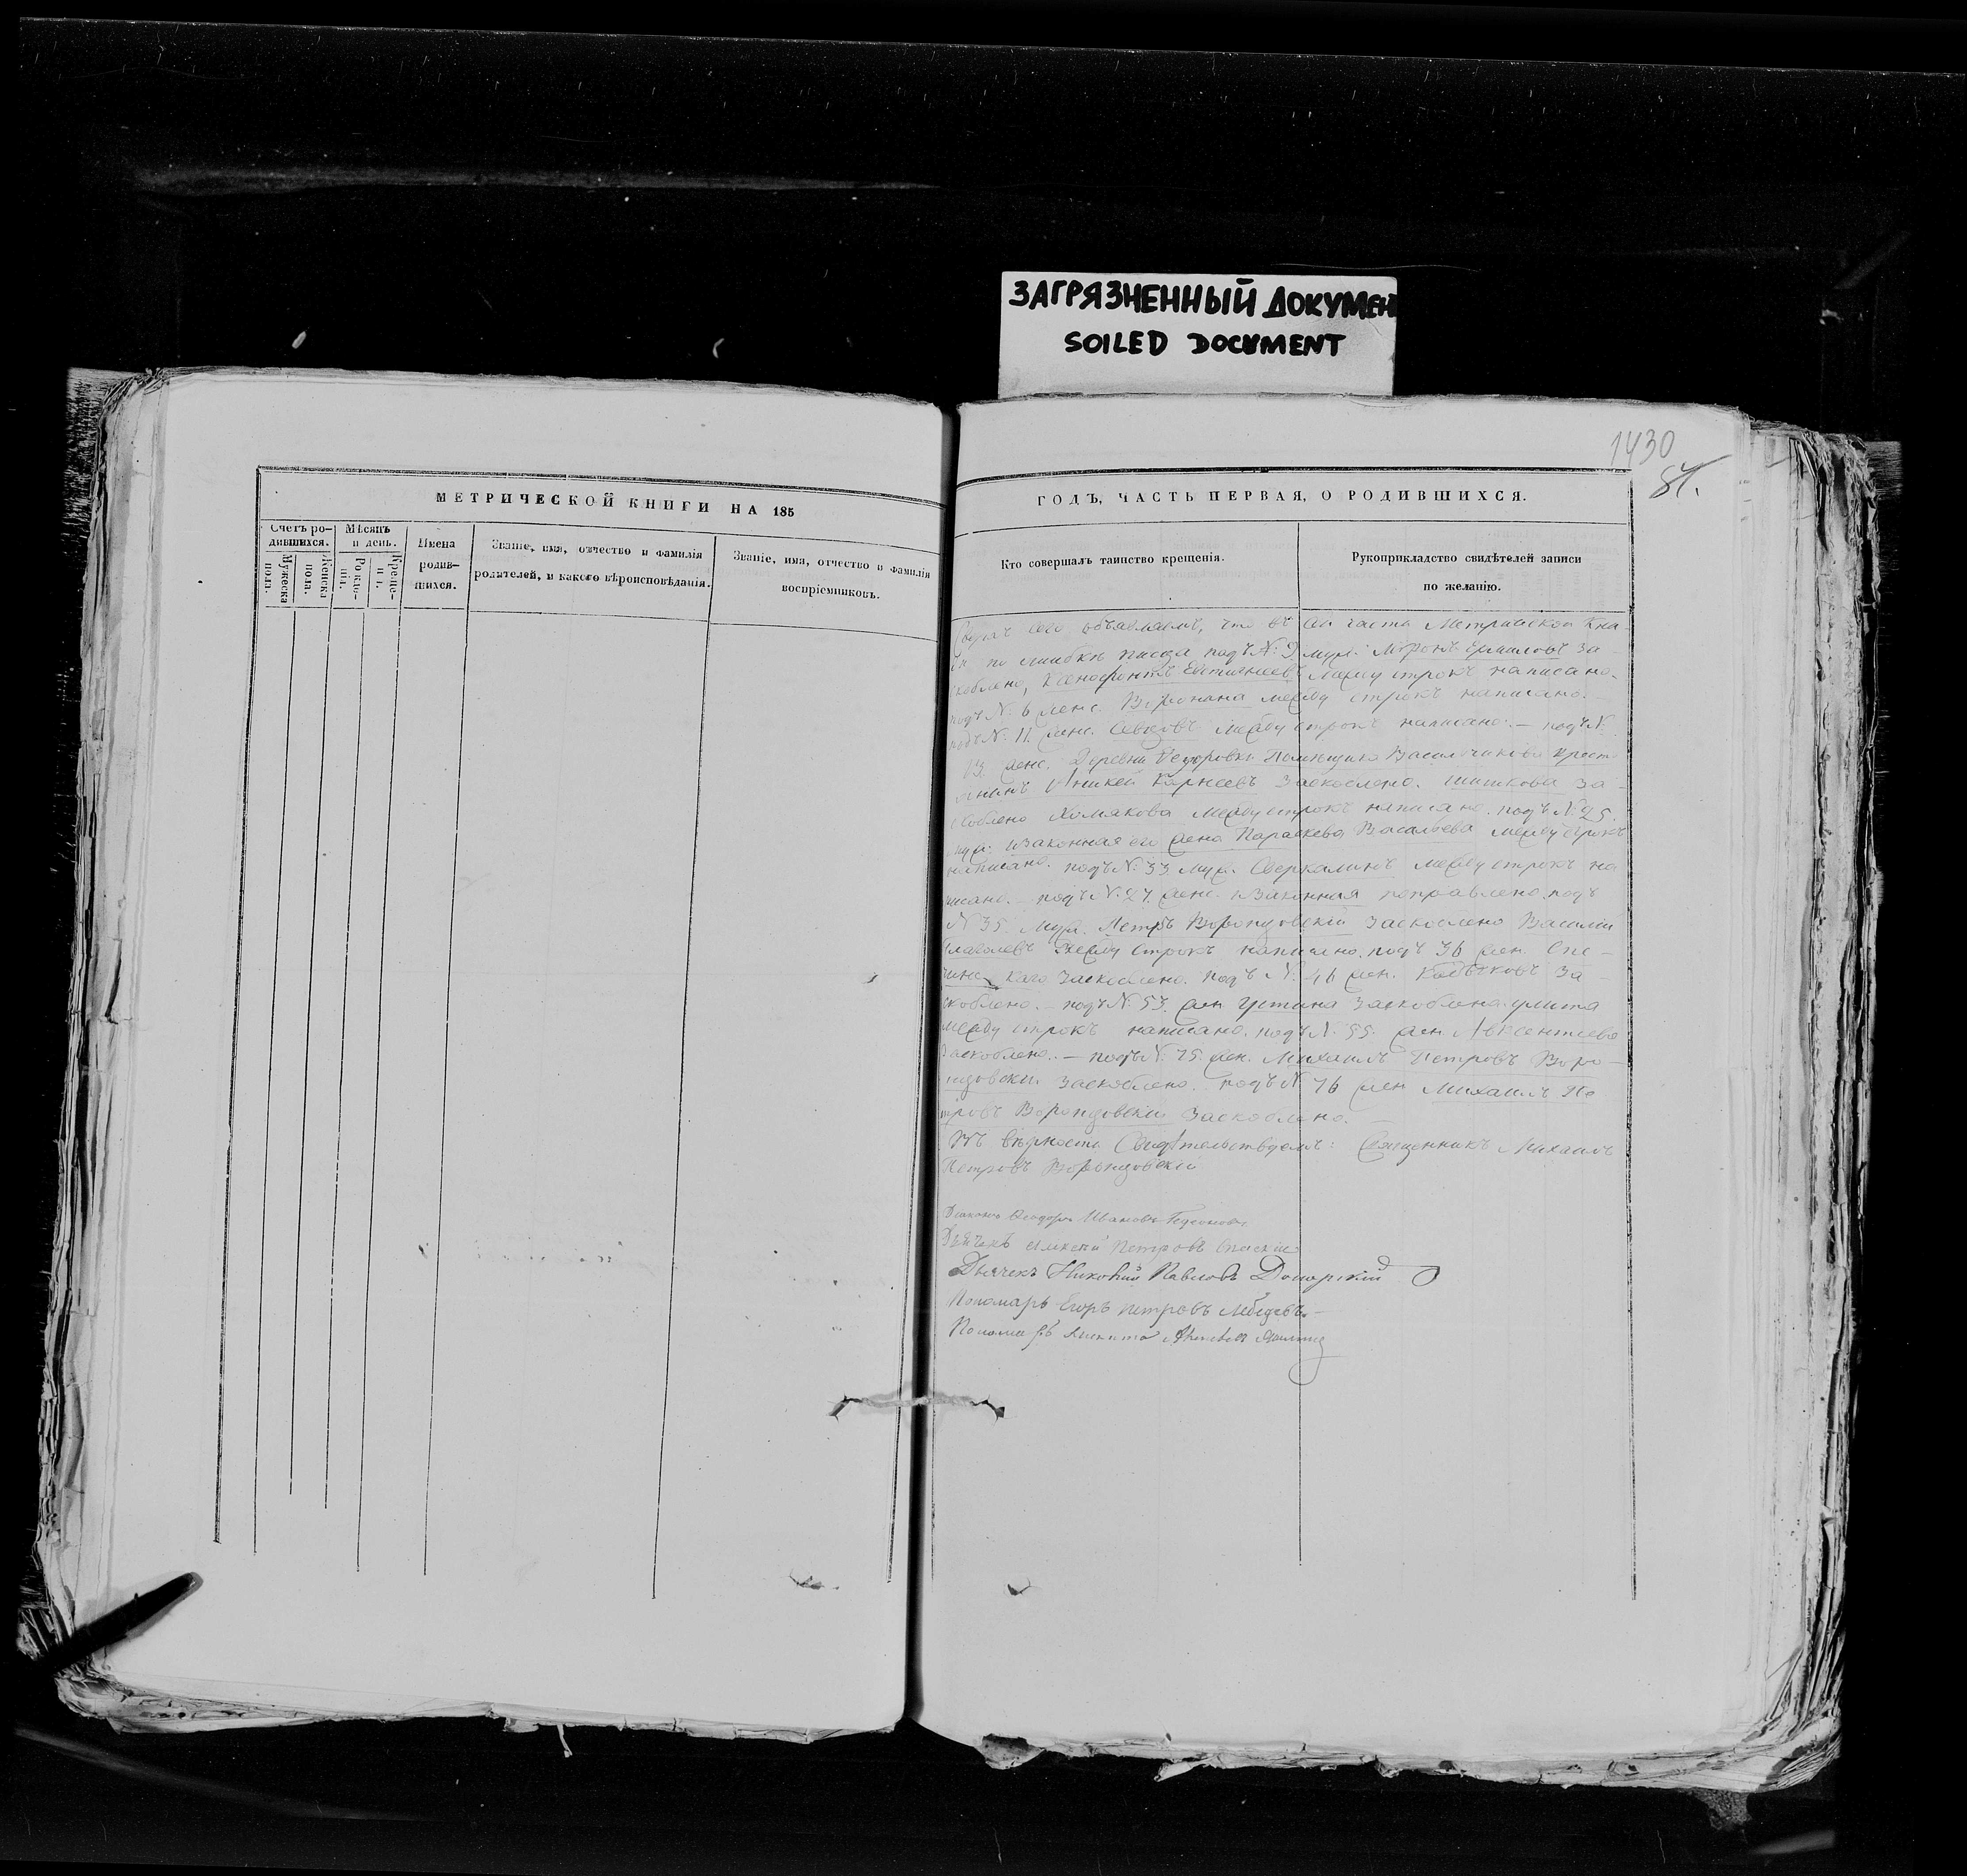 ЗАГРЯЗНЕННЫЙ ДОКУМЕН
SOILED DOCUMENT
1430
МЕТРИЧЕСКОЙ КНИГИ НА 185
Счетъ ро-
дившихся.
Мужеска
пола.
Женска
пола.
Мѣсяцъ
и день.
Рожде-
нія.
Креще-
нія.
Имена
родив-
шихся.
Званіе, имя, отчество и фамилія
родителей, и какого вѣроисповѣданія.
Званіе, имя, отчество и фамилія
воспріемниковъ.
ГОДЪ, ЧАСТЬ ПЕРВАЯ, О РОДИВШИХСЯ.
Кто совершалъ таинство крещенія.
Рукоприкладство свидѣтелей записи
по желанію.
сего объявляемъ, что въ сей части Метрической Кни
по ошибкѣ писца подъ №: 9 муж. за
скоблено, Ксенофонтъ Евтихіевъ между строкъ написано.
подъ №: 6 женс. между строкъ написано.
подъ №: 11 женс. между строкъ написано. — подъ №
13. женс. Деревни Федоровки Помѣщика Васильчикова крест
Карнеевъ заскоблено. Шишкова за
скоблено Хомякова между строкъ написано. подъ №: 25.
муж. и законная его жена Параскева Васильева между строкъ
написано. подъ №: 33 муж. между строкъ на
писано. подъ №: 27. женс. и законная поправлено. подъ
№ 35 муж. Петръ Воронцовскій заскоблено Василій
между строкъ написано. подъ 36 жен. Спе
каго заскоблено. подъ №: 46 жен. за
скоблено. — подъ №: 53. жен Устина заскоблена Улита
между строкъ написано. подъ №: 55. жен. Авксентіева
заскоблено. — подъ №: 75. жен. Михаилъ Петровъ Воро
нцовскій заскоблено. подъ № 76 жен Михаилъ Пе
тровъ Воронцовскій заскоблено.
Въ вѣрности свидѣтельствуемъ: Священникъ Михаилъ
Петровъ Воронцовскій
Діаконъ Ѳеодоръ Ивановъ
Дьячекъ Алексій Петровъ Спаскій
Дьячекъ Павловъ
Пономарь Егоръ Петровъ Лебедевъ
Пономарь Никита